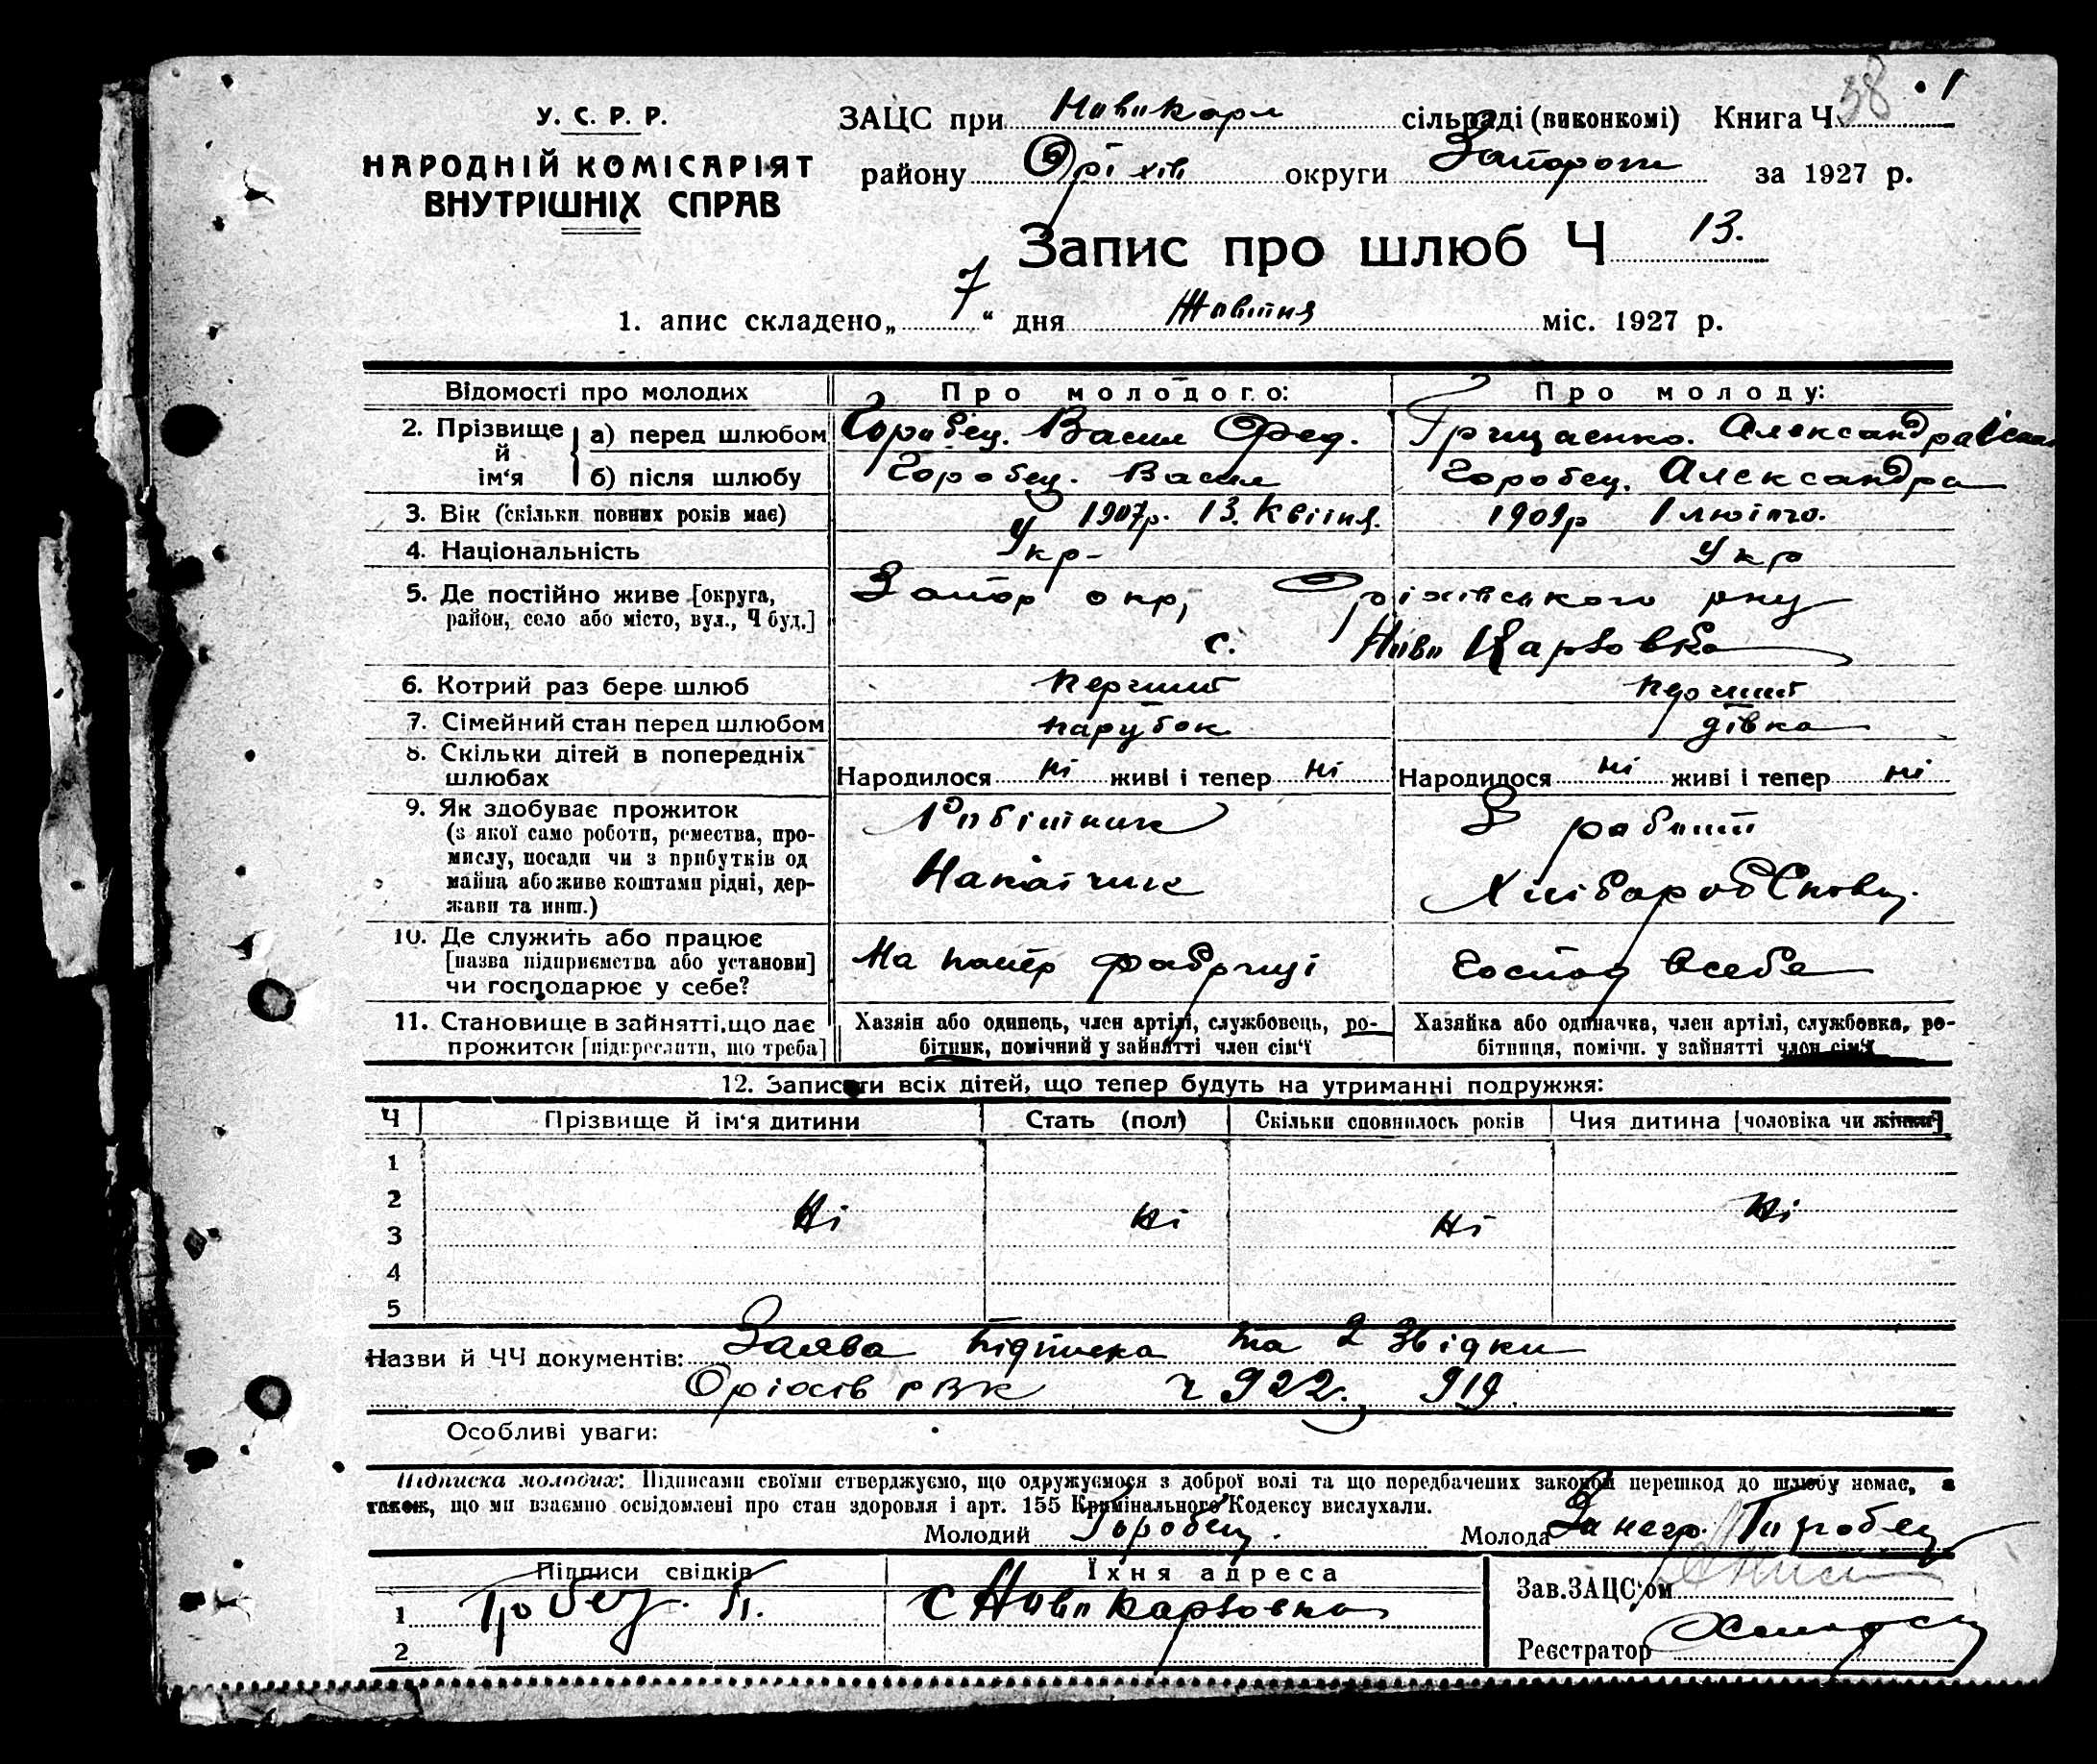 38 . 1
У. С. Р. Р.
НАРОДНІЙ КОМІСАРІЯТ
ВНУТРІШНІХ СПРАВ
ЗАЦС при Новокарл сільраді (виконкомі) Книга Ч.
району Оріхів округи Запорож за 1927 р.
Запис про шлюб Ч 13.
1. апис складено „ 7 “ дня Жовтня міс. 1927 р.
Відомості про молодих Про молодого: Про молоду:
2. Прізвище й ім‘я а) перед шлюбом Горобец. Васил Фед. Грищаенко. Александра
б) після шлюбу Горобец. Васил Горобец. Александра
3. Вік (скільки повних років має) 1907р. 13. Квітня. 1909р 1 лютого.
4. Національність Укр- Укр
5. Де постійно живе [округа, Запор окр, Оріхівського рну
район, село або місто, вул., Ч буд.] с. Ново Карловка
6. Котрий раз бере шлюб перший перший
7. Сімейний стан перед шлюбом парубок дівка
8. Скільки дітей в попередніх
шлюбах Народилося ні живі і тепер ні Народилося ні живі і тепер ні
9. Як здобуває прожиток Робітник З работи
(з якої само роботи, ремества, про-
мислу, посади чи з прибутків од Накатчик
майна або живе коштами рідні, дер-
жави та инш.)
10. Де служить або працює
[назва підприємства або установи] На папер фабриці Господ всебе
чи господарює у себе?
11. Становище в зайнятті, що дає Хазяїн або одинець, член артілі, службовець, ро- Хазяйка або одиначка, член артілі, службовка, ро-
прожиток [підкреслити, що треба] бітник, помічний у зайнятті член сім‘ї бітниця, помічн. у зайнятті член сім‘ї
12. Записати всіх дітей, що тепер будуть на утриманні подружжя:
Ч Прізвище й ім‘я дитини Стать (пол) Скільки сповнилось років Чия дитина [чоловіка чи жінки]
1
2 Ні Ні Ні Ні
3
4
5
Назви й ЧЧ документів: Заява підписка та 2 Звідки
Оріхів РВК ч 922. 919.
Особливі уваги:
Підписка молодих: Підписами своїми стверджуємо, що одружуємося з доброї волі та що передбачених законом перешкод до шлюбу немає, а
також, що ми взаємно освідомлені про стан здоровля і арт. 155 Кримінального Кодексу вислухали.
Молодий Горобец. Молода За негр. Горобец
Підписи свідків Їхня адреса Зав. ЗАЦС‘ом
1 с Ново Карловка
2 Реєстратор